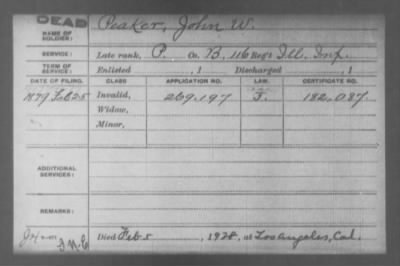 DEAD
NAME OF SOLDIER: Peaker, John W.
SERVICE: Late rank, P. Co. B, 116 Reg't Ill. Inf.
TERM OF SERVICE: Enlisted , 1 Discharged , 1
DATE OF FILING. CLASS. APPLICATION NO. LAW. CERTIFICATE NO.
1879 Feb 25 Invalid, 269.197 J. 182.087.
Widow,
Minor,
ADDITIONAL SERVICES:
REMARKS:
Died Feb 5 , 1928, at Los Angeles, Cal.